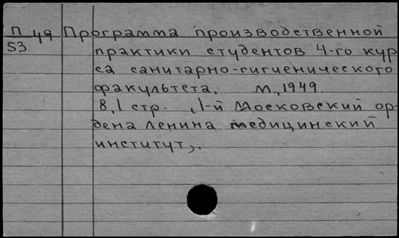 П 49 Программа производственной
53 практики студентов 4-го кур-
са санитарно-гигиенического
факультета. М., 1949.
8,1 стр. , 1-й Московский ор-
дена Ленина медицинский
институт,.